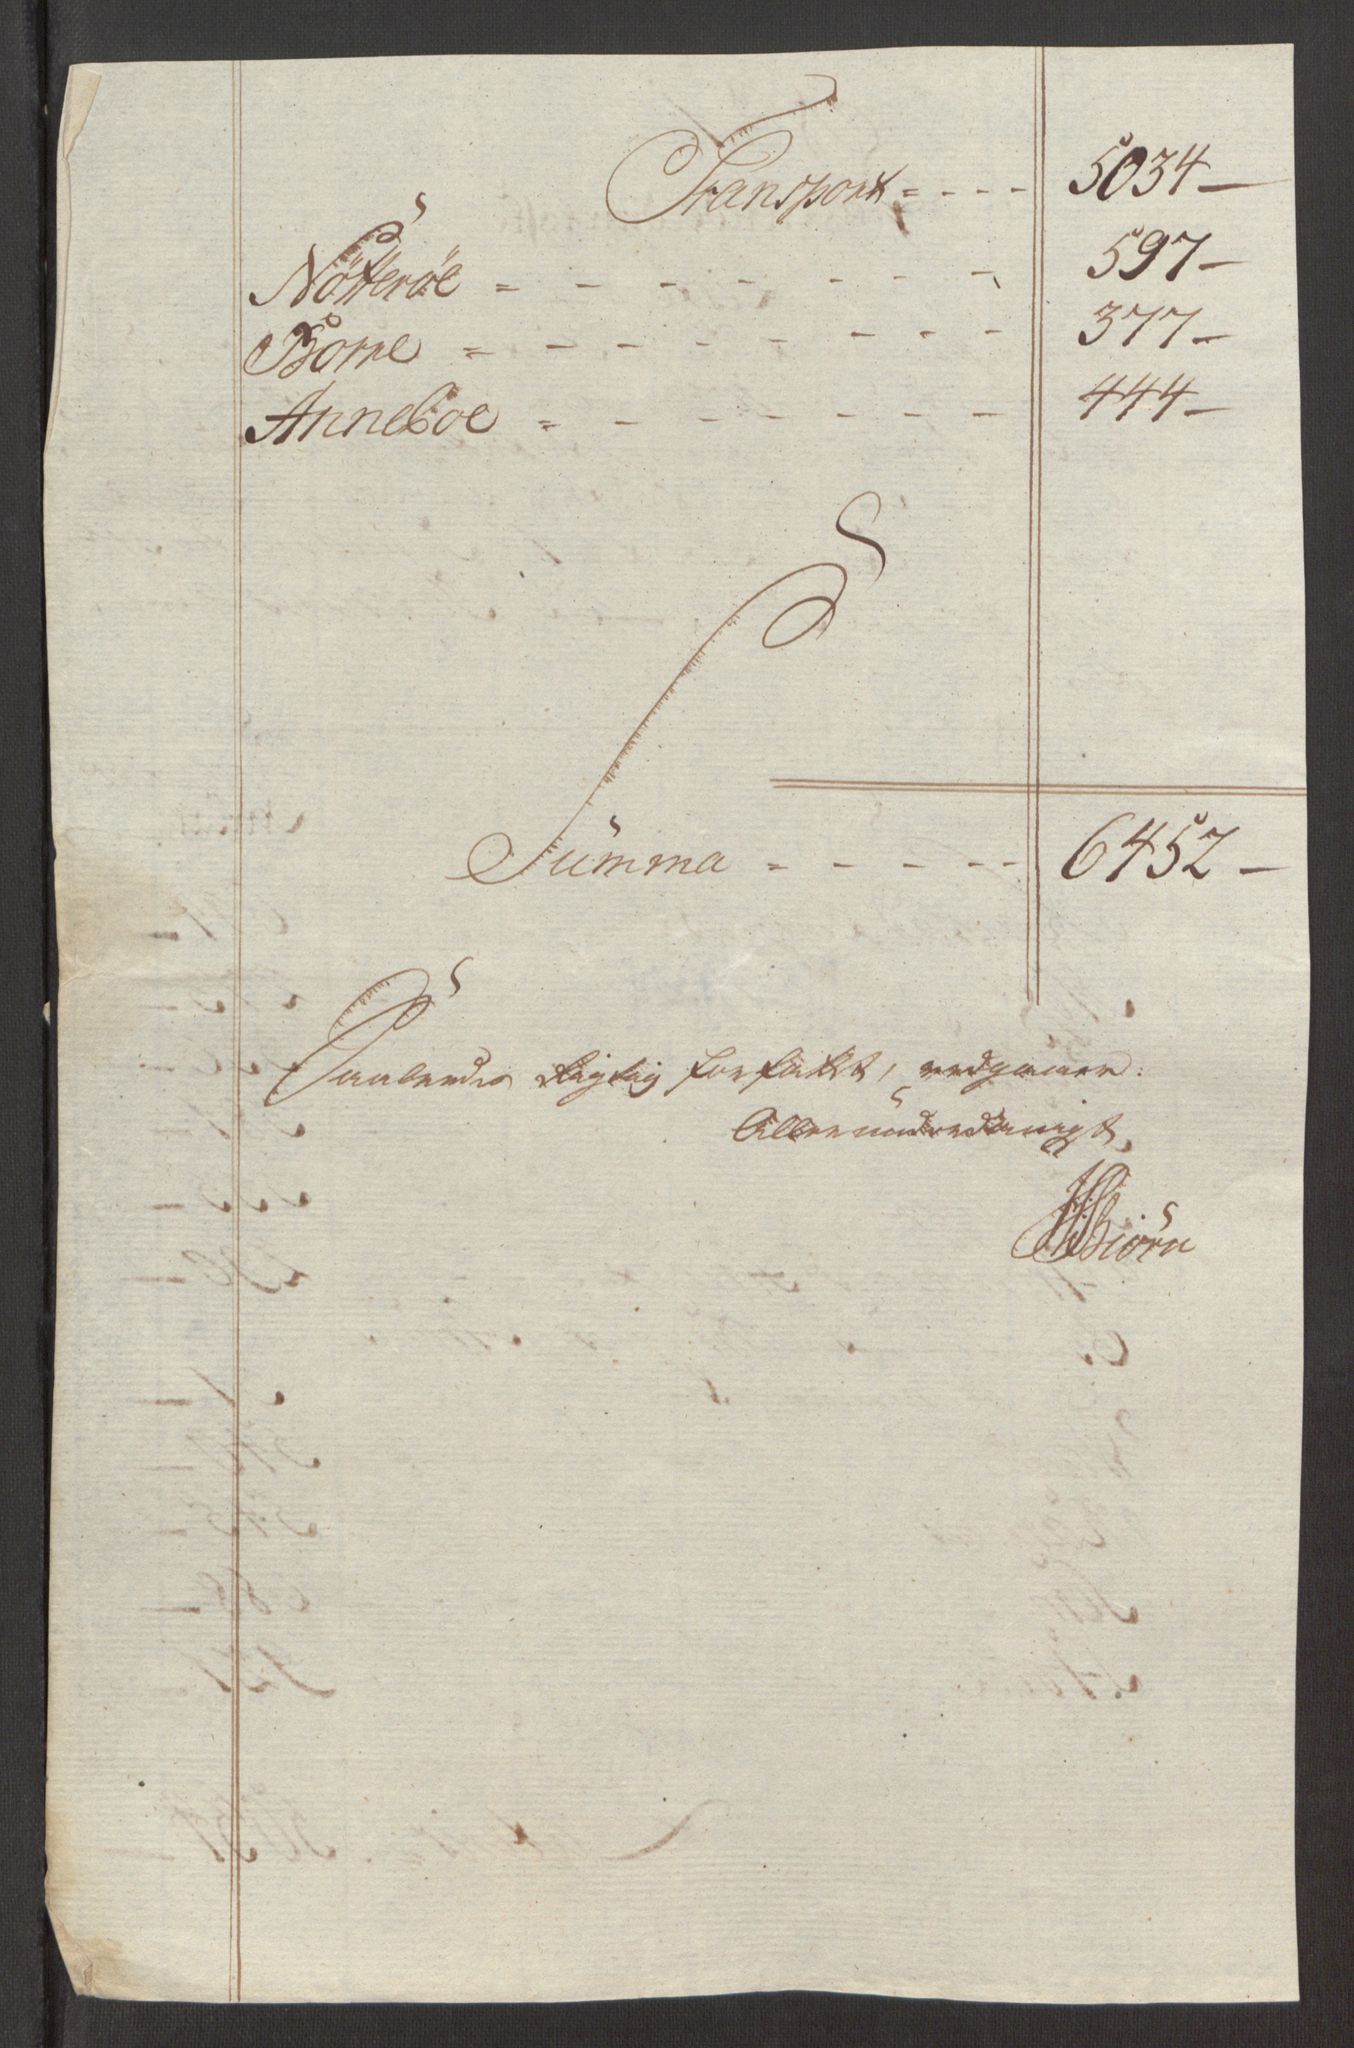 Transport = - - - 5034 —
Nötteröe = - - - - - - 597 —
Borre = - - - - - - - 377 —
Anneboe = - - - - - - 444 —
Summa = - - - - 6452 —
Saaledes Rigtig forfattet, vedgaaer
Allerunderdanigst
Biörn